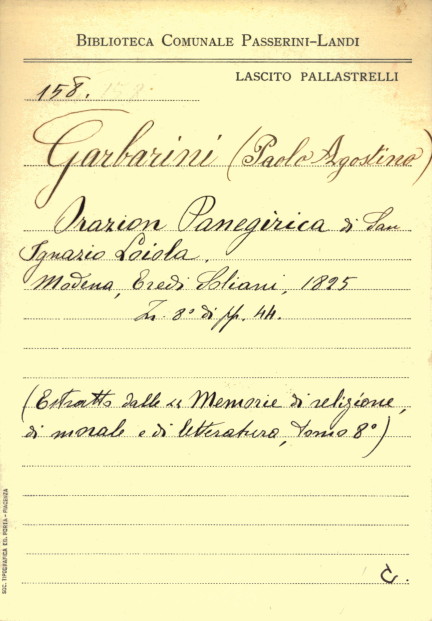 BIBLIOTECA COMUNALE PASSERINI-LANDI
LASCITO PALLASTRELLI
158.
Garbarini (Paolo Agostino)
Orazion Panegirica di San
Ignazio Loiola.
Modena, Eredi Soliani, 1825
In 8° di pp. 44.
(Estratto dalle "Memorie di religione,
di morale e di letteratura, tomo 8°)
C.
SOC. TIPOGRAFICA ED. PORTA - PIACENZA